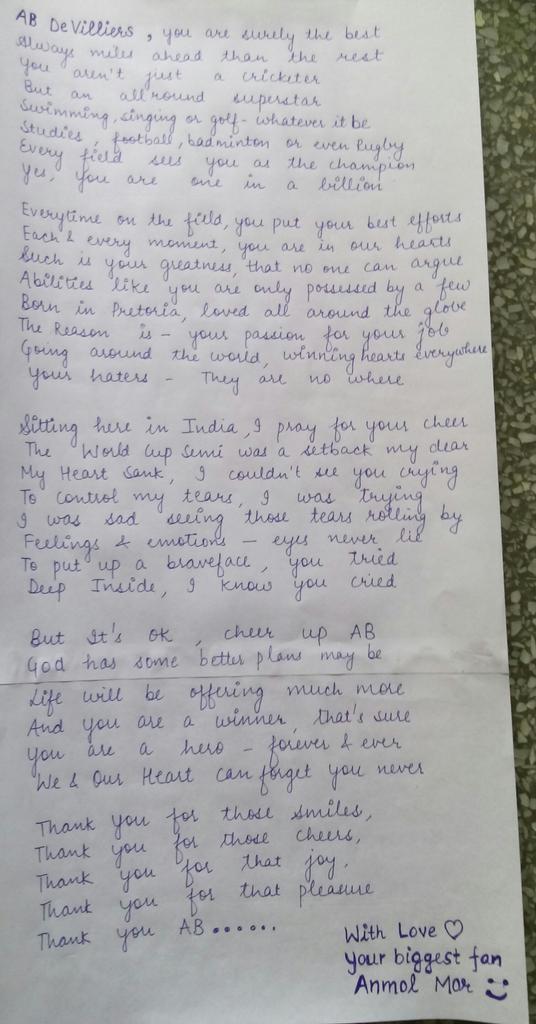 AB DeVilliers, you are surely the best
Always miles ahead than the rest
You aren't just a cricketer
But an all round superstar
Swimming, singing or golf - whatever it be
Studies, football, badminton or even Rugby
Every field sees you as the champion
Yes, you are one in a billion
Everytime on the field, you put your best efforts
Each & every moment, you are in our hearts
Such is your greatness, that no one can argue
Abilities like you are only possessed by a few
Born in Pretoria, loved all around the globe
The Reason is - your passion for your job
Going around the world, winning hearts everywhere
Your haters - They are no where
Sitting here in India, I pray for your cheer
The World Cup Semi was a setback my dear
My Heart Sank, I couldn't see you crying
To control my tears, I was trying
I was sad seeing those tears rolling by
Feelings & emotions - eyes never lie
To put up a braveface, you tried
Deep Inside, I know you cried
But It's ok, cheer up AB
God has some better plans may be
Life will be offering much more
And you are a winner, that's sure
You are a hero - forever & ever
We & Our Heart can forget you never
Thank you for those smiles,
Thank you for those cheers,
Thank you for that joy,
Thank you for that pleasure
Thank you AB......
With Love ♡
Your biggest fan
Anmol Mor